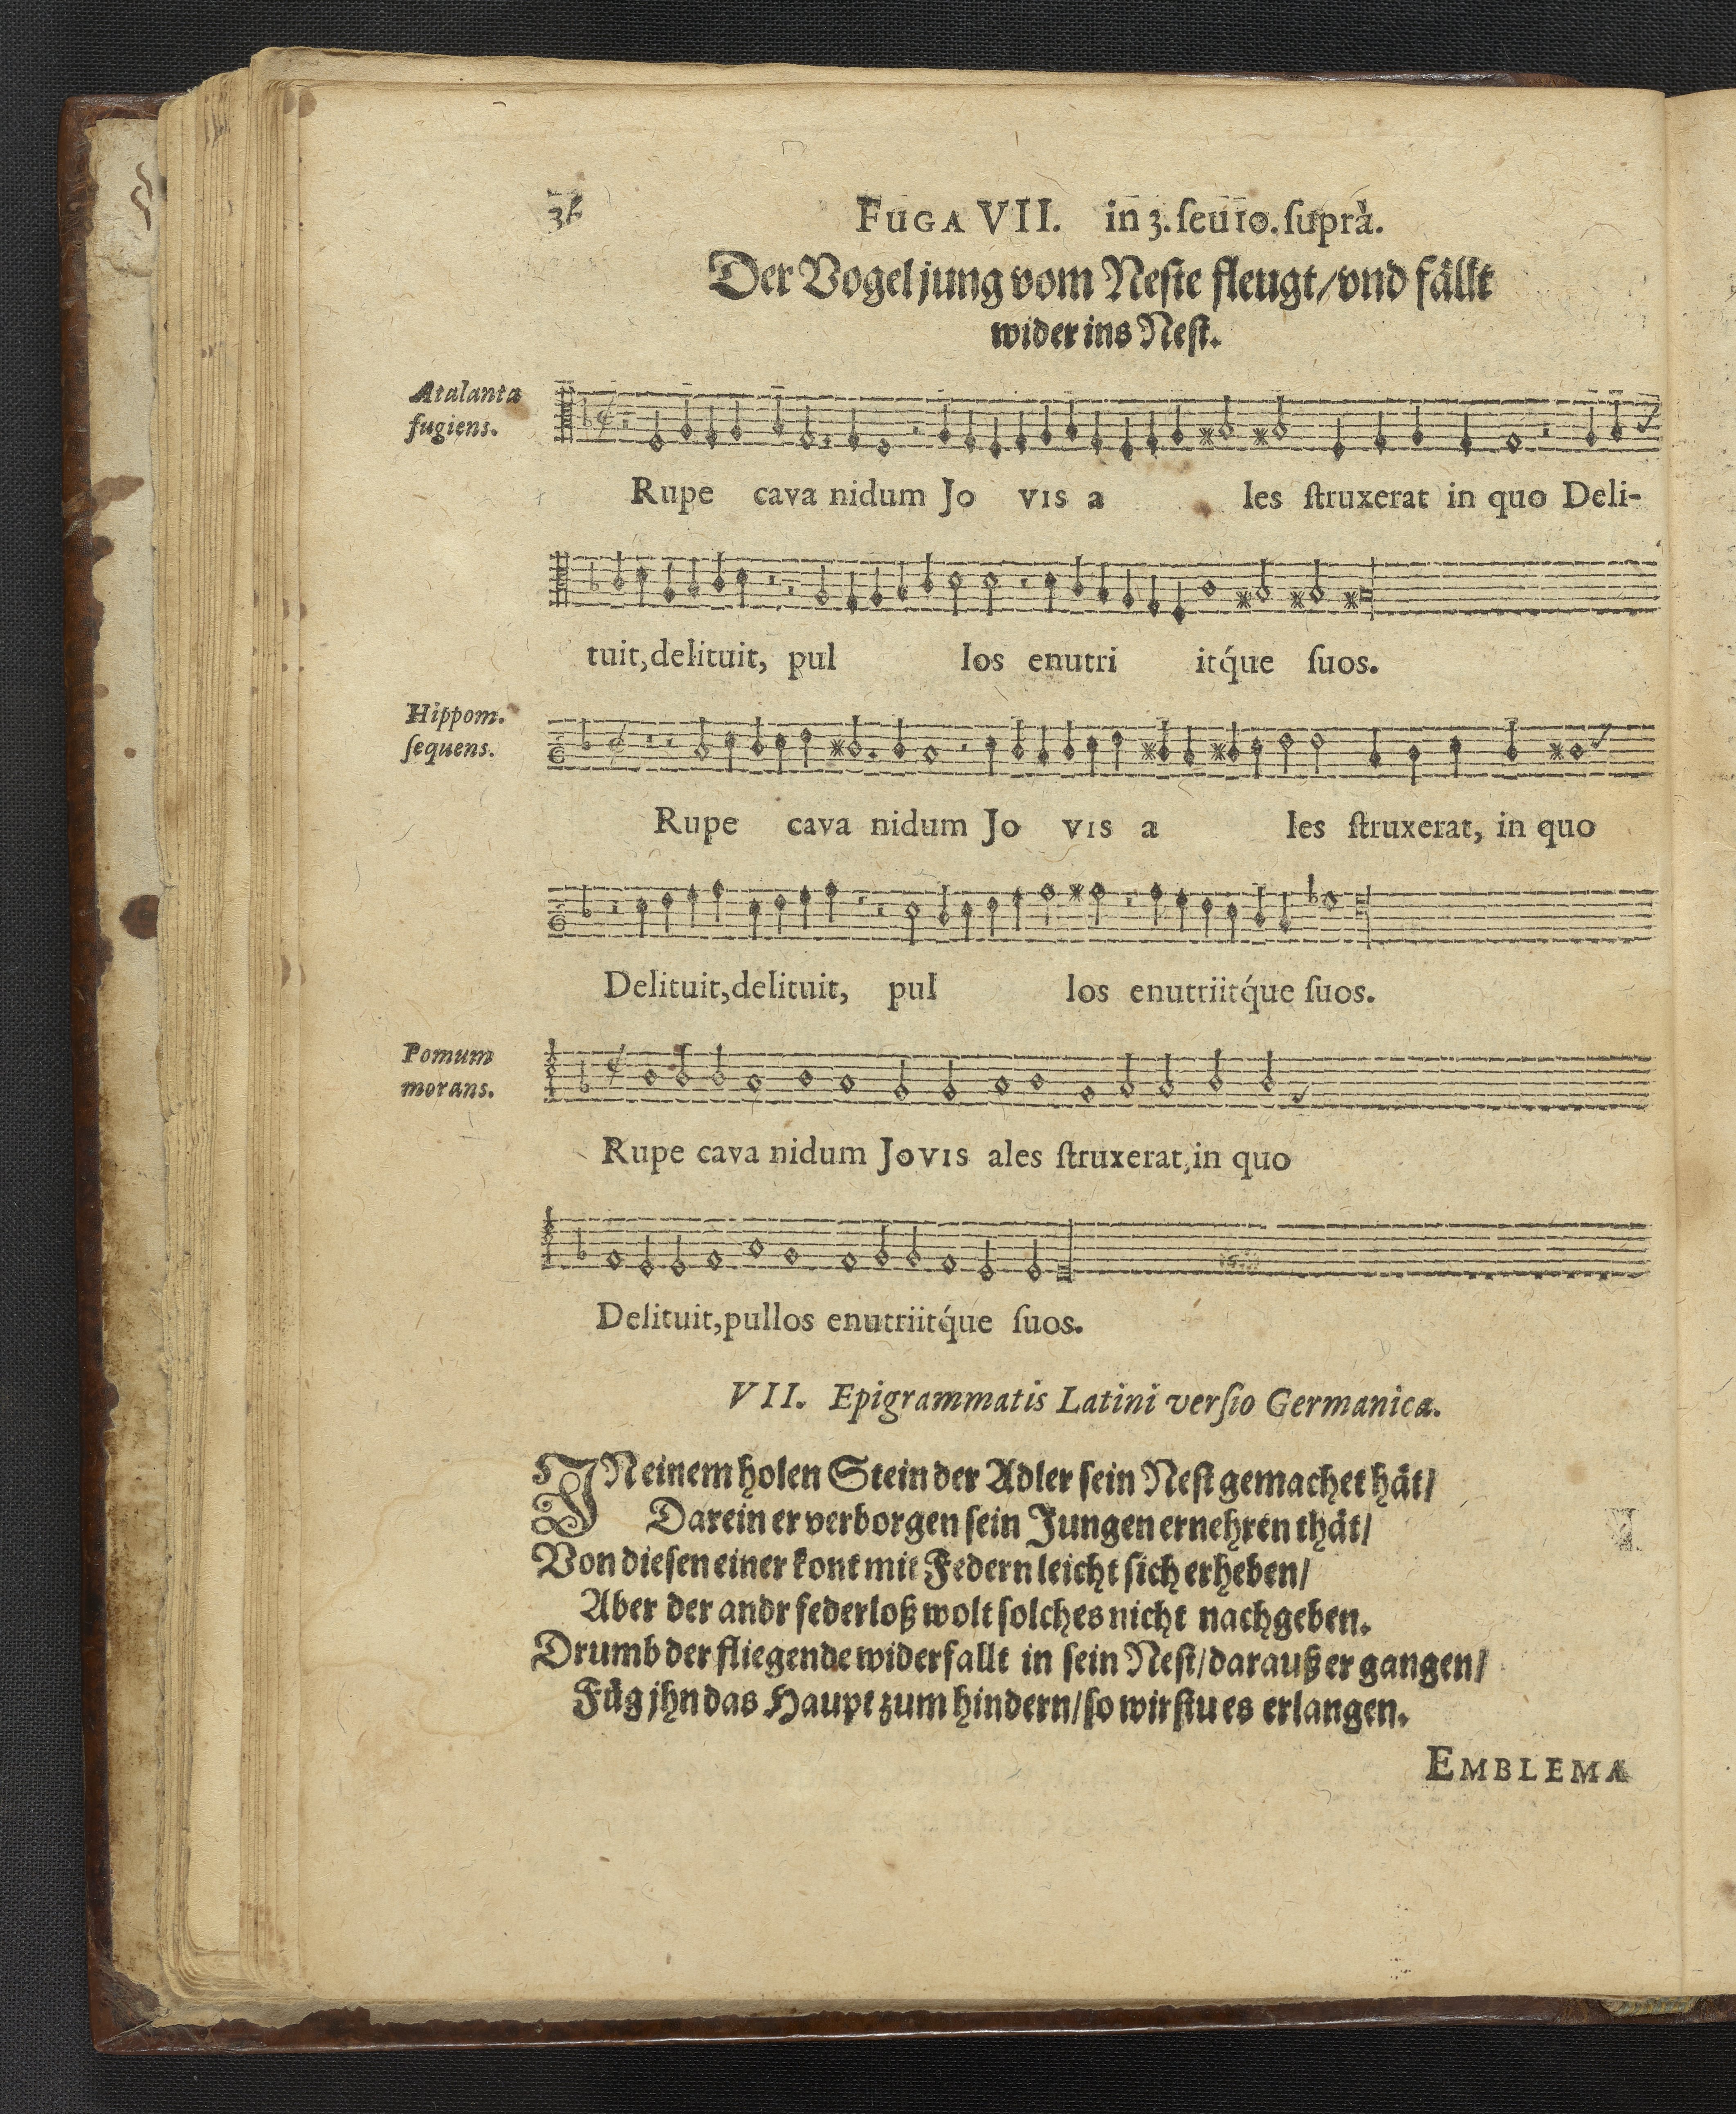 36
FUGA VII. in 3. ſeu 10. ſuprà.
Der Vogel jung vom Neſte fleugt/ vnd fällt
wider ins Neſt.
Atalanta
fugiens.
Rupe cava nidum Jo vis a les ſtruxerat in quo Deli-
tuit, delituit, pul los enutri itq́ue ſuos.
Hippom.
ſequens.
Rupe cava nidum Jo vis a les ſtruxerat, in quo
Delituit, delituit, pul los enutriitq́ue ſuos.
Pomum
morans.
Rupe cava nidum Jovis ales ſtruxerat, in quo
Delituit, pullos enutriitq́ue ſuos.
VII. Epigrammatis Latini verſio Germanica.
IN einem holen Stein der Adler ſein Neſt gemachet hät/
Darein er verborgen ſein Jungen ernehren thät/
Von dieſen einer kont mit Federn leicht ſich erheben/
Aber der andr federloß wolt ſolches nicht nachgeben.
Drumb der fliegende widerfallt in ſein Neſt/ darauß er gangen/
Füg jhn das Haupt zum hindern/ ſo wirſtu es erlangen.
EMBLEMA